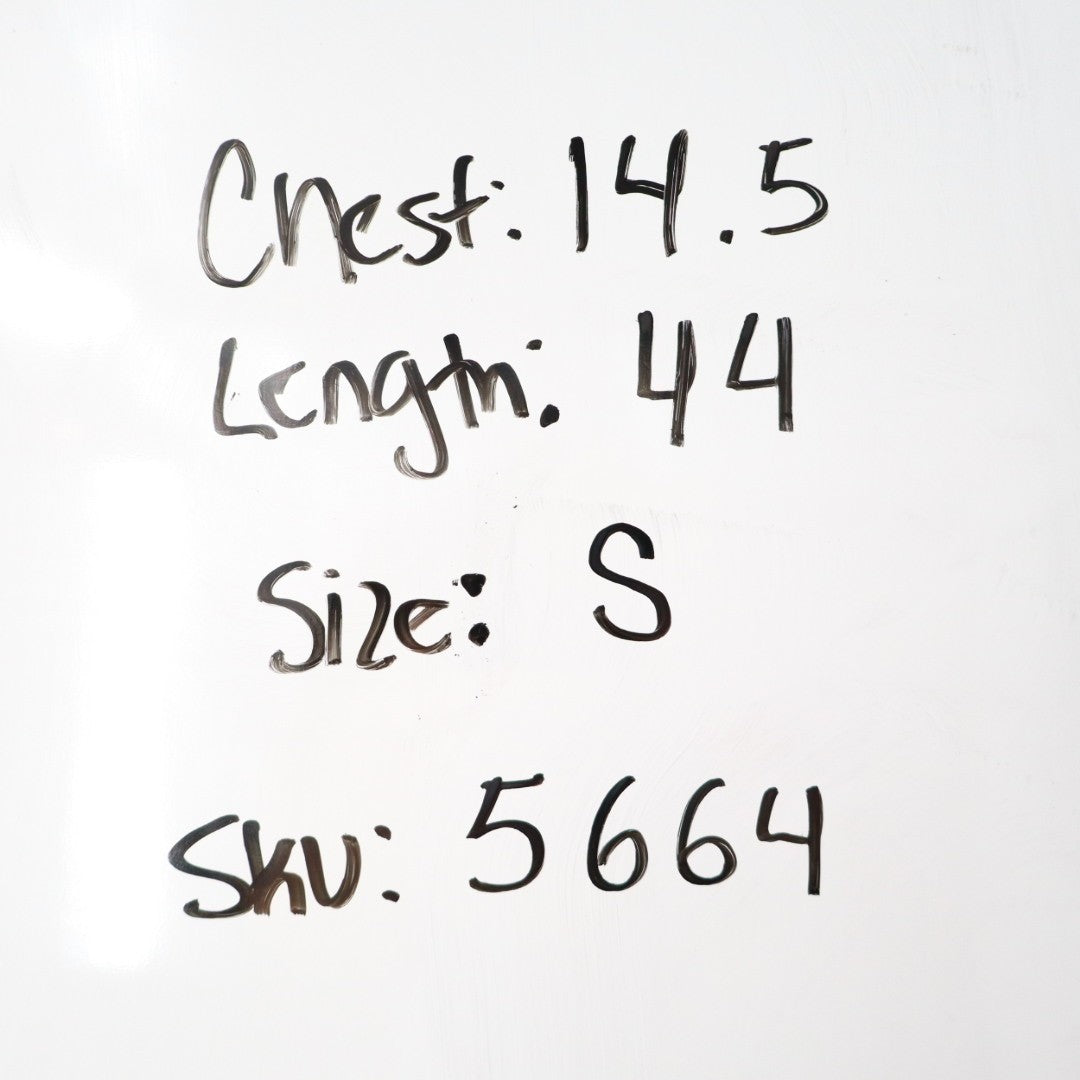 Chest: 14.5
Length: 44
Size: S
Sku: 5664